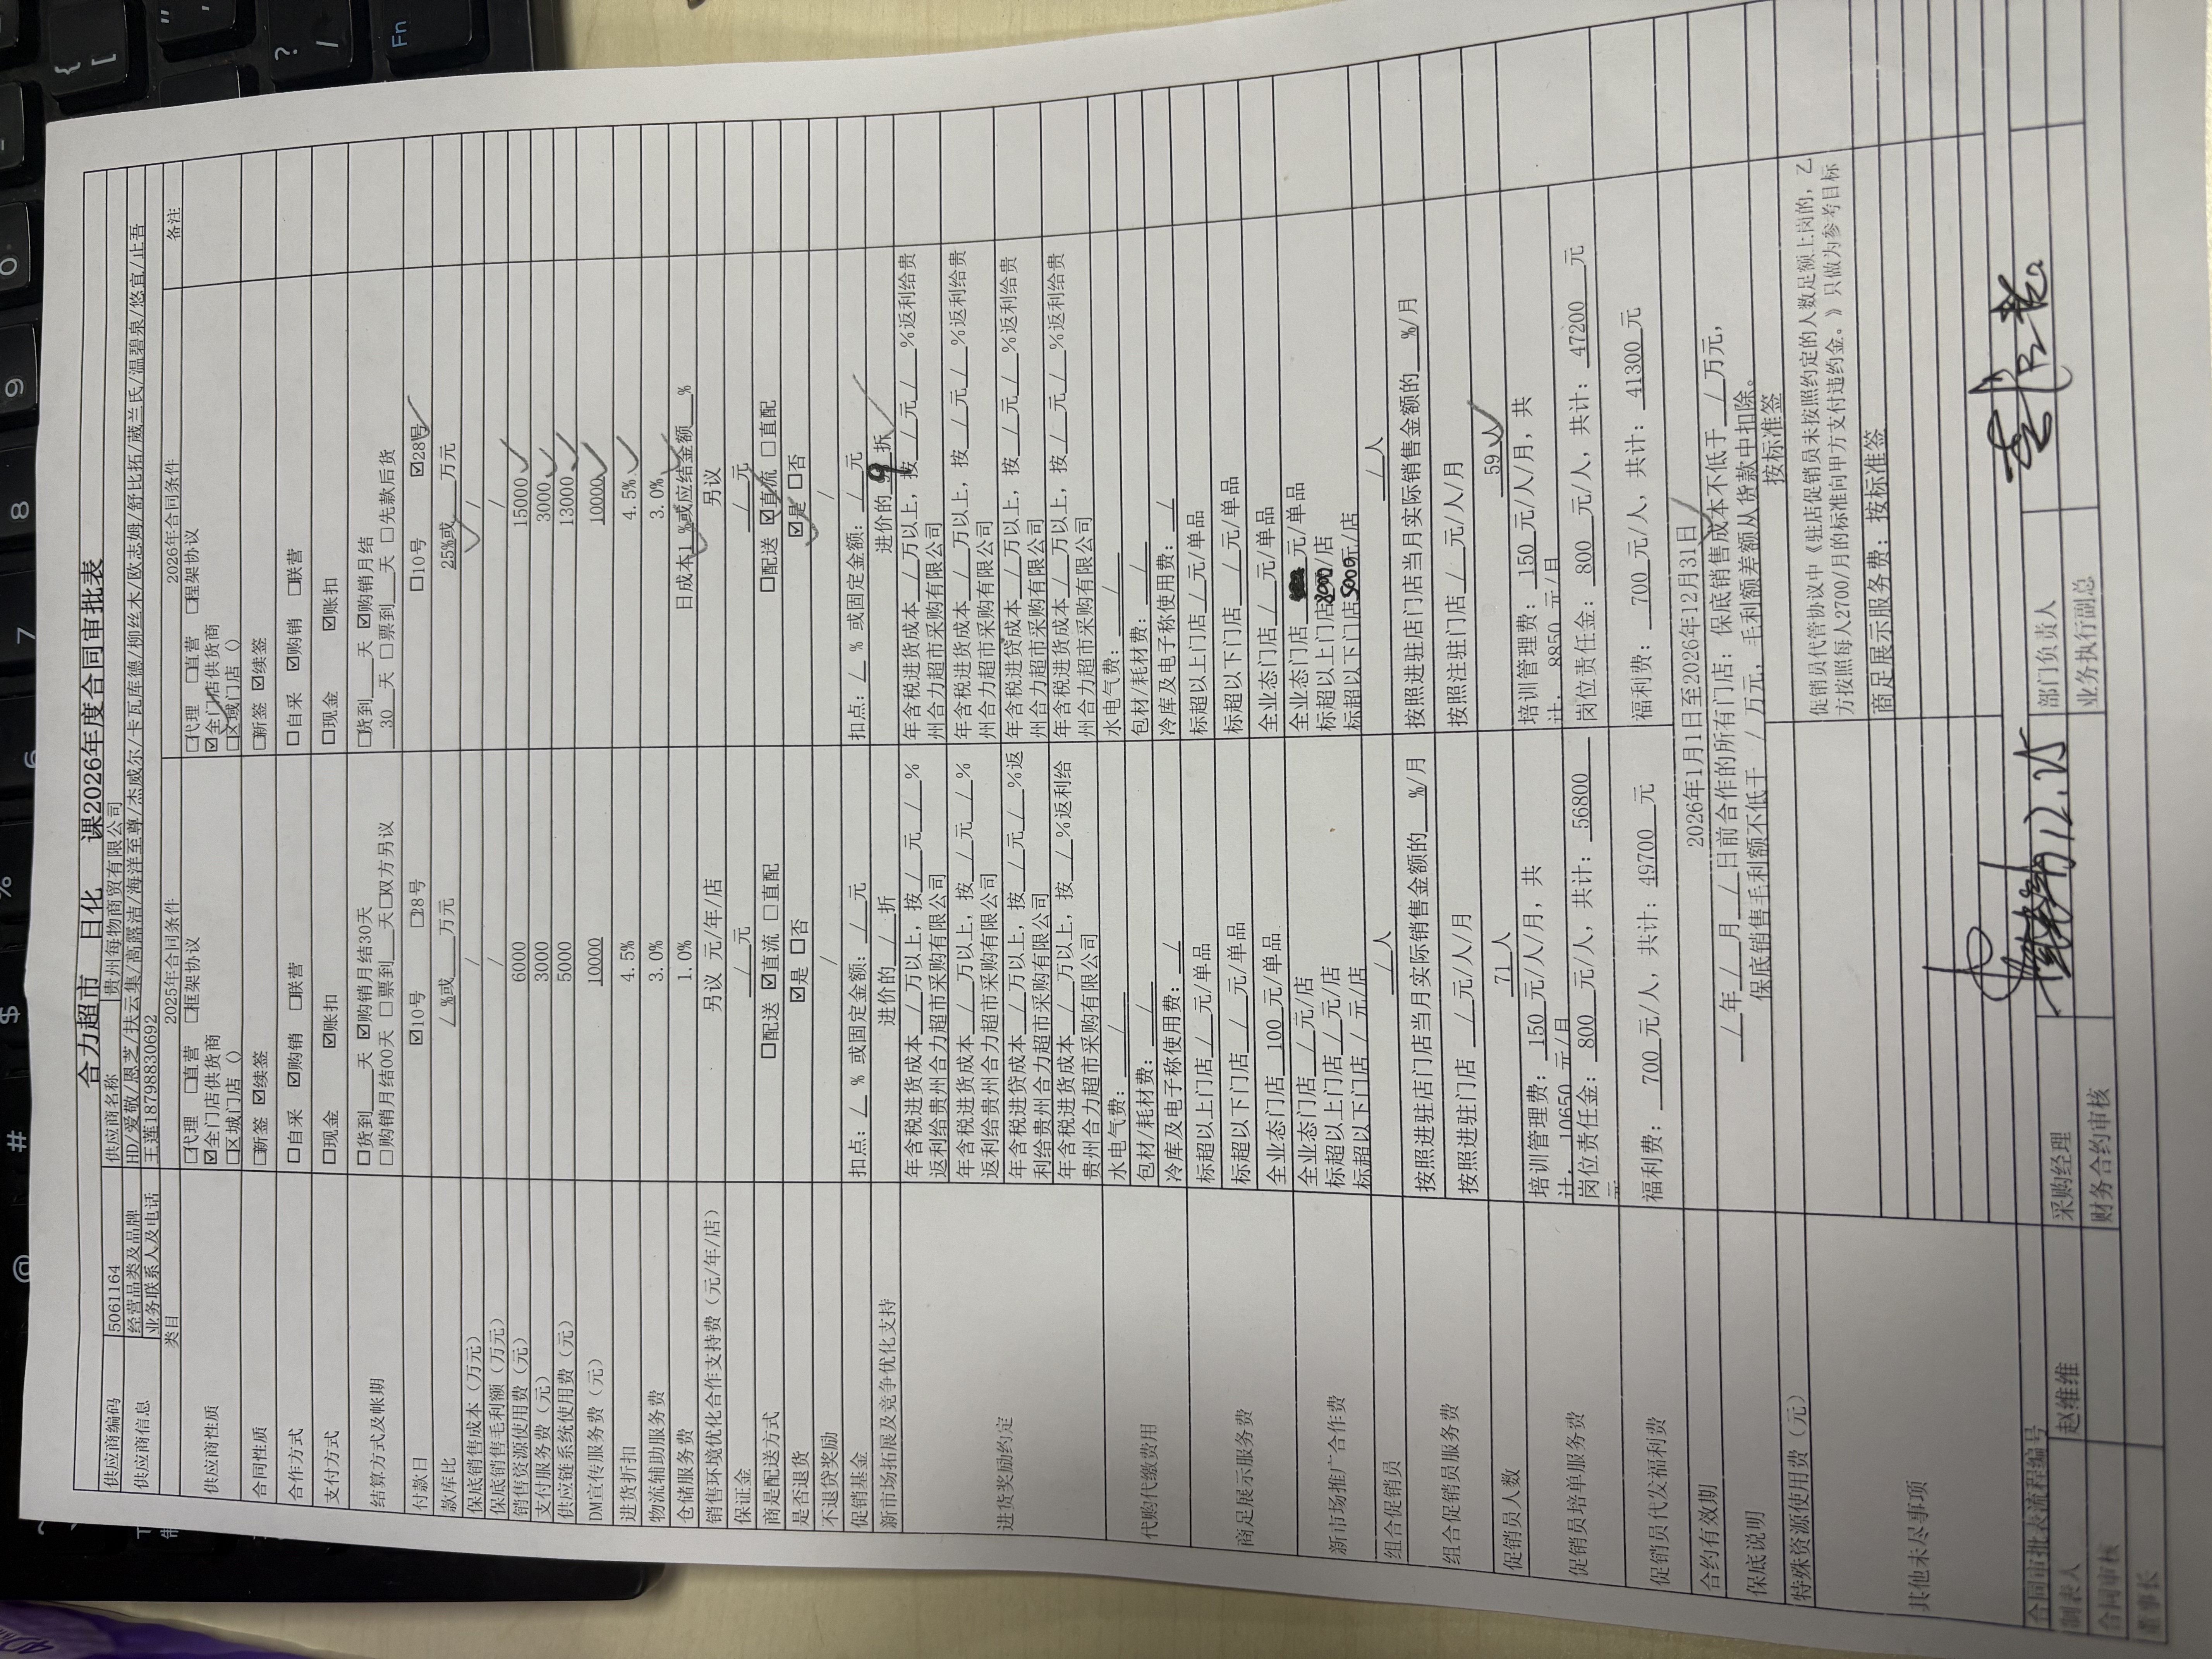 合力超市 日化 课2026年度合同审批表
供应商编码 5061164 供应商名称 贵州每物商贸有限公司
供应商信息 经营品类及品牌 HD/爱敬/恩芝/扶云集/高露洁/海洋至尊/杰威尔/卡瓦库德/柳丝木/欧志姆/舒比拓/葳兰氏/温碧泉/悠宜/止吾
业务联系人及电话 王莲18798830692
类目 2025年合同条件 2026年合同条件 备注
供应商性质 □代理 □直营 □框架协议 □代理 □直营 □程架协议
☑全门店供货商 ☑全门店供货商
□区城门店（） □区域门店（）
合同性质 □新签 ☑续签 □新签 ☑续签
合作方式 □自采 ☑购销 □联营 □自采 ☑购销 □联营
支付方式 □现金 ☑账扣 □现金 ☑账扣
结算方式及帐期 □货到___天 ☑购销月结30天 □货到___天 ☑购销月结
□购销月结00天 □票到___天□双方另议 30 天 □票到___天 □先款后货
付款日 ☑10号 □28号 □10号 ☑28号
款库比 / %或___万元 25%或___万元
保底销售成本（万元） / /
保底销售毛利额（万元） / /
销售资源使用费（元） 6000 15000
支付服务费（元） 3000 3000
供应链系统使用费（元） 5000 13000
DM宣传服务费（元） 10000 10000
进货折扣 4.5% 4.5%
物流辅助服务费 3.0% 3.0%
仓储服务费 1.0% 日成本1 %或应结金额___%
销售环境优化合作支持费（元/年/店） 另议 元/年/店 另议
保证金 / 元 / 元
商是配送方式 □配送 ☑直流 □直配 □配送 ☑直流 □直配
是否退货 ☑是 □否 ☑是 □否
不退贷奖励 / /
促销基金 扣点：/ % 或固定金额：/ 元 扣点：/ % 或固定金额：/ 元
新市场拓展及竞争优化支持 进价的 / 折 进价的 9 折
进货奖励约定 年含税进货成本 / 万以上，按 / 元 / % 年含税进货成本 / 万以上，按 / 元 / %返利给贵
返利给贵州合力超市采购有限公司 州合力超市采购有限公司
年含税进货成本 / 万以上，按 / 元 / % 年含税进货成本 / 万以上，按 / 元 / %返利给贵
返利给贵州合力超市采购有限公司 州合力超市采购有限公司
年含税进贷成本 / 万以上，按 / 元 / %返 年含税进贷成本 / 万以上，按 / 元 / %返利给贵
利给贵州合力超市采购有限公司 州合力超市采购有限公司
年含税进货成本 / 万以上，按 / %返利给 年含税进货成本 / 万以上，按 / 元 / %返利给贵
贵州合力超市采购有限公司 州合力超市采购有限公司
代购代缴费用 水电气费： / 水电气费： /
包材/耗材费： / 包材/耗材费： /
冷库及电子称使用费： / 冷库及电子称使用费： /
商足展示服务费 标超以上门店 / 元/单品 标超以上门店 / 元/单品
标超以下门店 / 元/单品 标超以下门店 / 元/单品
全业态门店 100 元/单品 全业态门店 / 元/单品
新市场推广合作费 全业态门店 / 元/店 全业态门店 元/单品
标超以上门店 / 元/店 标超以上门店 /店
标超以下门店 / 元/店 标超以下门店5000元/店
组合促销员 / 人 / 人
组合促销员服务费 按照进驻店门店当月实际销售金额的___%/月 按照进驻店门店当月实际销售金额的___%/月
按照进驻门店 / 元/人/月 按照注驻门店 / 元/人/月
促销员人数 71 人 59 人
促销员培单服务费 培训管理费： 150 元/人/月，共 培训管理费： 150 元/人/月，共
计. 10650 元/月 计. 8850 元/月
岗位责任金： 800 元/人，共计： 56800 岗位责任金： 800 元/人，共计： 47200 元
元
促销员代发福利费 福利费： 700 元/人，共计： 49700 元 福利费： 700 元/人，共计： 41300 元
合约有效期 2026年1月1日至2026年12月31日
保底说明 / 年 / 月 / 日前合作的所有门店：保底销售成本不低于 / 万元，
保底销售毛利额不低于 / 万元，毛利额差额从货款中扣除。
特殊资源使用费（元） 按标准签
其他未尽事项 促销员代管协议中《驻店促销员未按照约定的人数足额上岗的，乙
方按照每人2700/月的标准向甲方支付违约金。》只做为参考目标
商足展示服务费：按标准签
合同审批表流程编号
制表人 赵维维 采购经理 12.25 部门负责人
合同审核 财务合约审核 业务执行副总
董事长